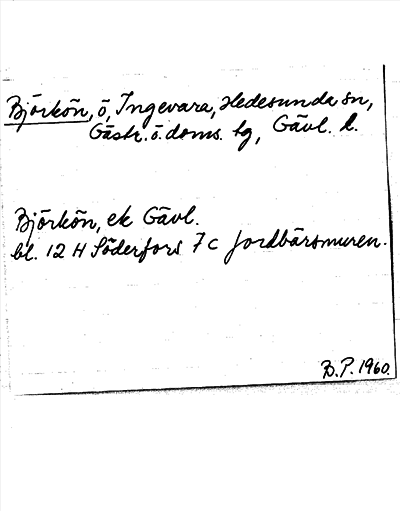 Björkön, ö, Ingevara, Hedesunda sn,
Gästr. ö. doms. tg, Gävl. l.
Björkön, ek Gävl.
bl. 12 H Söderfors 7 c Jordbärsmuren.
B.P. 1960.